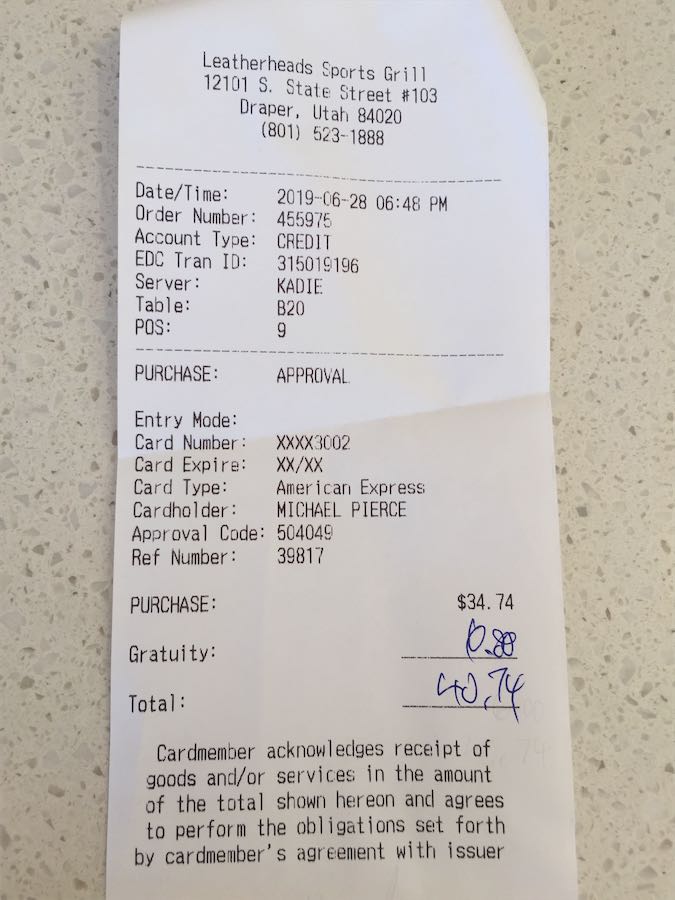 Leatherheads Sports Grill
12101 S. State Street #103
Draper, Utah 84020
(801) 523-1888
Date/Time: 2019-06-28 06:48 PM
Order Number: 455975
Account Type: CREDIT
EDC Tran ID: 315019196
Server: KADIE
Table: B20
POS: 9
PURCHASE: APPROVAL
Entry Mode:
Card Number: XXXX3002
Card Expire: XX/XX
Card Type: American Express
Cardholder: MICHAEL PIERCE
Approval Code: 504049
Ref Number: 39817
PURCHASE: $34.74
Gratuity:
Total: 40.74
Cardmember acknowledges receipt of
goods and/or services in the amount
of the total shown hereon and agrees
to perform the obligations set forth
by cardmember's agreement with issuer